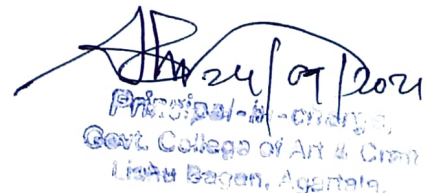 24/09/2021
Principal-in-charge,
Govt. College of Art & Craft
Lichu Bagan, Agartala.